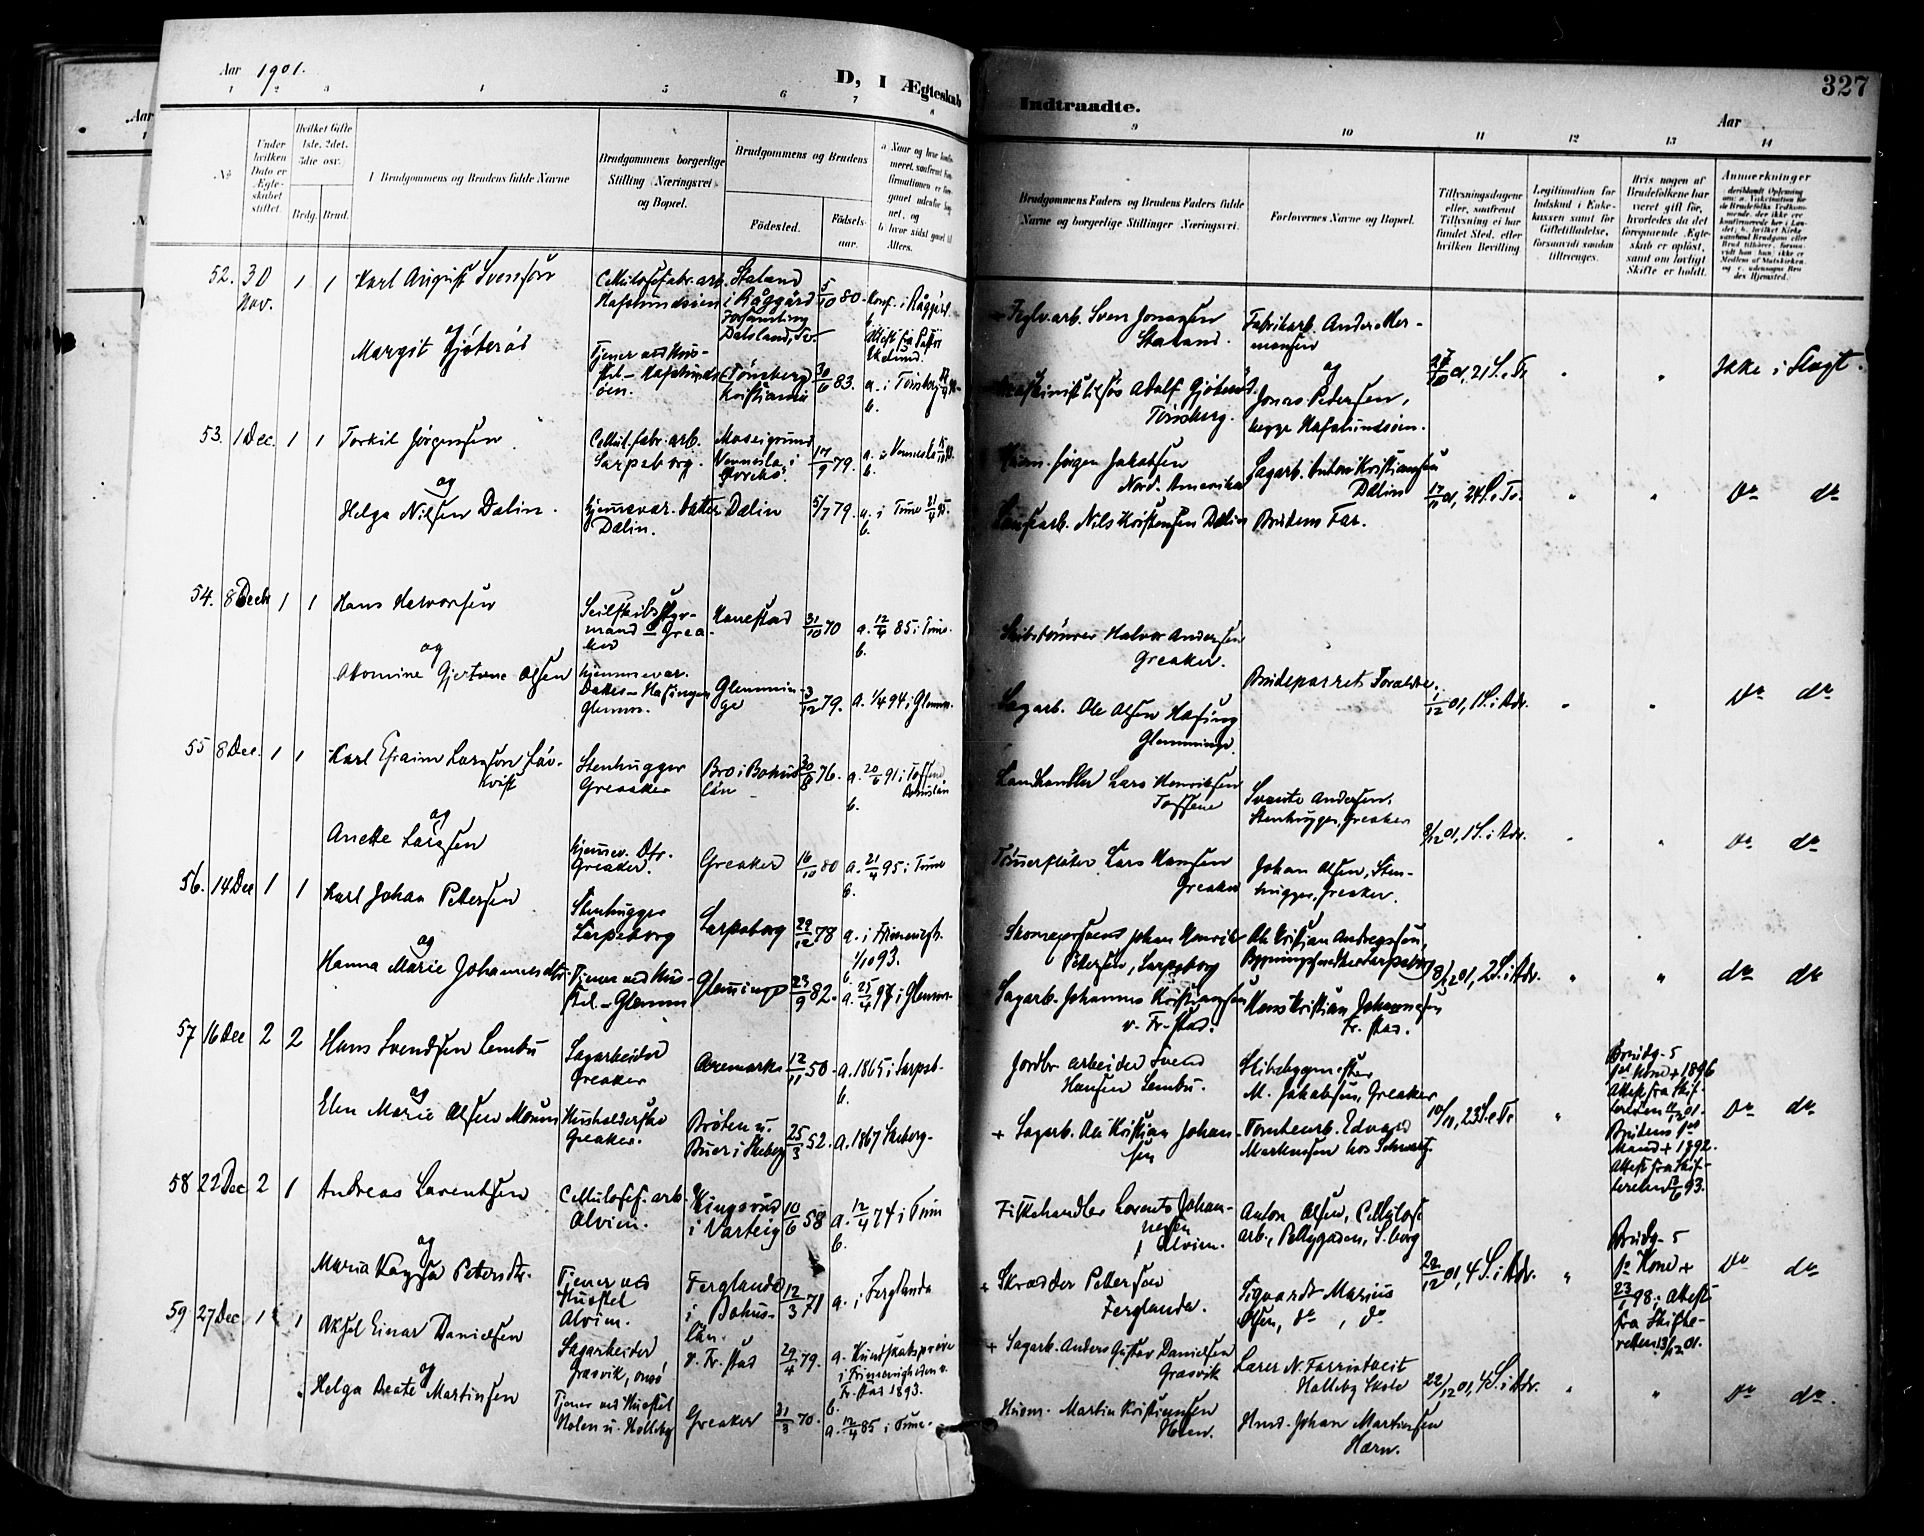 Aar 1901.
D, I Ægteskab
Indtraadte.
Aar
327
1 2 3 4 5 6 7 8
9 10 11 12 13 14
No
Under hvilken Dato er Ægteskabet stiftet.
Hvilket Gifte 1ste, 2det, 3die osv.
Brdg. Brud.
Brudgommens og Brudens fulde Navne
Brudgommens borgerlige Stilling Næringsvei og Bopæl.
Brudgommens og Brudens
Födested.
Födselsaar.
Brudgommens Faders og Brudens Faders fulde Navne og borgerlige Stillinger Næringsvei.
Forlovernes Navne og Bopæl.
Tillysningsdagene eller, saafremt Tillysning ei har fundet Sted, efter hvilken Bevilling
Legitimation for Indskud i Enkekassen samt for Giftetilladelse, forsaavidt saadan tiltrænges.
Hvis nogen af Brudefolkene har været gift för, hvorledes da det foregaaende Ægteskab er oplöst, samt om lovligt Skifte er holdt.
Anmærkninger
52. 30 Nov. 1 1 Karl August Svensson
og
Margit Gjöterös
Cellulosefabr. arb. Hafslundsöen
Staland i Råggärd Forsamling Dalsland, Sv.
5/10 80.
Konf. i Råggärd.
Tjener ved Huusstel - Hafslundsöen.
Tönsberg Kristiania
30/6 83.
a. i Tönsberg
b.
Sven Jonassen Staland.
Adolf Gjöterös Tönsberg.
Fabrikarb. Anders Hermansen
og
Jonas Petersen, begge Hafslundsöen.
27/10 01, 21 S. e. Tr.
Ikke i Slægt.
53. 1 Dec. 1 1 Torkil Jörgensen
og
Helga Nilsen Dalin.
Cellul. fabr. arb. Sarpsborg.
Moseigrund Vennesla i Övrebö.
17/9 79.
a. i Vennesla
b.
Hjemmevær. Datter Dalin.
Dalin
5/7 79.
a. i Tune 21/4
b.
Jörgen Jakobsen Nord-Amerika
Nils Kristensen Dalin
Sagarb. Anton Kristiansen Dalin
Brudens Far.
17/11 01, 24 S. e. Tr.
Do do
54. 8 Decbr 1 1 Hans Halvorsen
og
Gjertine Olsen
Seilskibsstyrmand Greaker
Hannestad
31/10 70
a. 12/4 85 i Tune.
b.
Hjemmevær. Datter - Hasingen Glemm.
Glemminge
3/12 79.
a. 1/4 94 i Glemm.
Skibstömrer Halvor Andersen Greaker.
Sagarb. Ole Olsen Hasing Glemminge.
Brudeparrets Forældre.
1/12 01, 1 S. i Adv.
Do do
55 8 Dec. 1 1 Karl Efraim Larsson Lövkvist
og
Anette Larsen
Stenhugger Greaker
Bro i Bohuslän
30/8 76.
a. 20/6 91 i Tossene Bohuslän
b.
Hjemmev. Dtr. Greaker.
Greaker
16/10 80
a. 21/4 95 i Tune
b.
Landhandler Lars Henriksen Tossene
Tömmerflöter Lars Hansen Greaker
Svante Andersen, Stenhugger, Greaker
Johan Olsen, Stenhugger, Greaker.
8/12 01, 1 S. i Adv.
Do do
56. 14 Dec 1 1 Karl Johan Petersen
og
Hanna Marie Johannesdtr.
Stenhugger Sarpsborg
Sarpsborg
29/12 78
a. i Frimenigh. 1/10 93.
b.
Tjener ved Husstel - Glemm
Glemminge
23/9 82.
a. 25/4 97 i Glemm.
Johan Henrik Petersen, Sarpsborg
Sagarb. Johannes Kristiansen v. Fr.stad.
Ole Kristian Andreassen, Sarpsborg
Hans Kristian Johannesen Fr.stad.
8/12 01, 2 S. i Adv.
do do
57 16 Dec 2 2 Hans Svendsen Lembu
og
Elen Marie Olsen Moum
Sagarbeider Greaker
Aremark
12/11 50.
a. 1865 i Sarpsb.
b.
Husholderske Greaker.
Bröten u. Buer i Skeberg
25/3 52.
a. 1867 Skeberg.
Jordbr. arbeider Svend Hansen Lembu.
+ Sagarb. Ole Kristian Johansen
Skibsbygmester M. Jakobsen, Greaker
Tomtearb. Edvard Martinsen hos Schwartz.
10/11, 23 S. e. Tr.
Brudg.s 1st Kone + 1896 Attest fra Skifteretten 11/12 01. Brudens 1ste Mand + 1892. Attest fra Skifteretten 93.
Do do
58 22 Dec 2 1 Andreas Larentsen
og
Maria Kaysa Petersdtr.
Cellulosef. arb. Alvim.
Kingsrud i Varteig
10/6 58
a. 12/4 74 i Tune
b.
Tjener ved Husstel Alvim.
Ferglanda i Bohuslän.
12/3 71
a. i Ferglanda
Fiskehandler Lorents Johannesen, Alvim.
+ Skrædder Petterson Ferglanda.
Anton Olsen, Cellulosearb., S.borg
Sigvardt Marius Olsen, do , do
22/12 01, 4 S. i Adv.
Brudg.s 1e Kone + 23/1 98; Attest fra Skifteretten 13/12 01.
Do do
59 27 Dec 1 1 Aksel Einar Danielsen
og
Helga Beate Martinsen
Sagarbeider, Græsvik, Onsö
v. Fr.stad
29/4 79.
a. Kundskabspröve i Frimenigheden v. Fr.stad 1893.
b.
Tjener ved Husstel Holen u. Holleby
Greaker
31/3 70.
a. 12/4 85 i Tune.
+ Sagarb. Anders Gustav Danielsen Græsvik
Husm. Martin Kristiansen Hven.
Lærer N. Farristveit Holleby Skole
Husmd. Johan Martinsen Hærn.
22/12 01, 4 S. i Adv.
Do do.